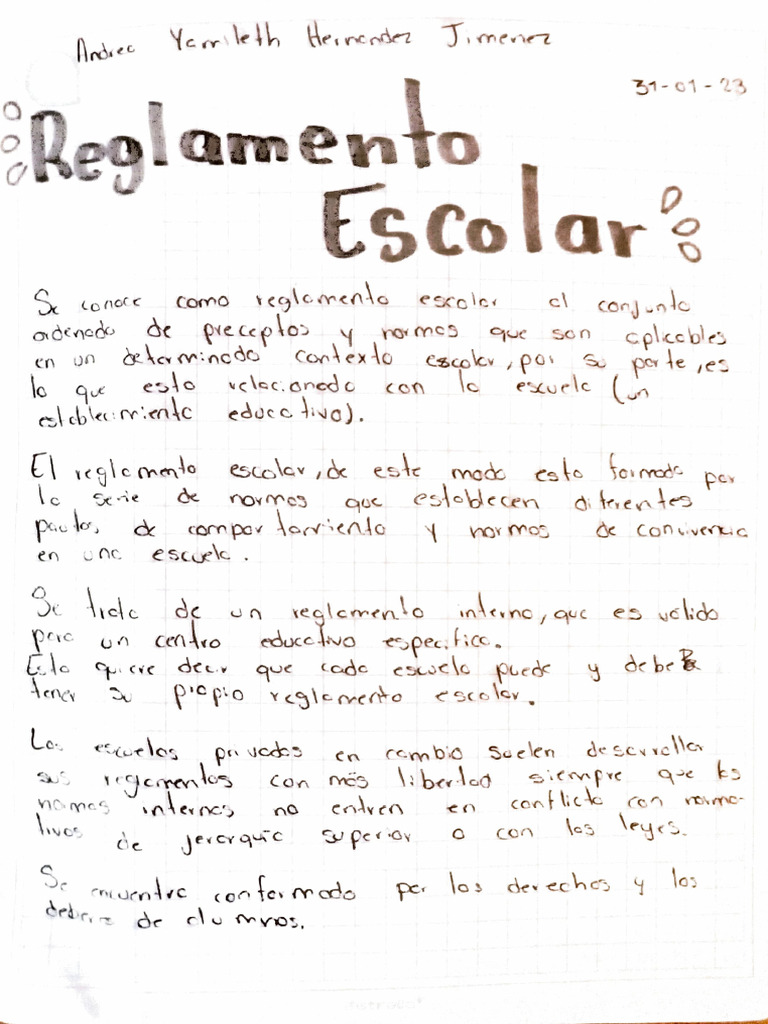 Andrea Yamileth Hernandez Jimenez
31-01-23
Reglamento
Escolar
Se conoce como reglamento escolar al conjunto
ordenado de preceptos y normas que son aplicables
en un determinado contexto escolar, por su parte, es
lo que esta relacionado con la escuela (un
establecimiento educativo).
El reglamento escolar, de este modo esta formado por
la serie de normas que establecen diferentes
pautas de comportamiento y normas de convivencia
en una escuela.
Se trata de un reglamento interno, que es válido
para un centro educativo especifico.
Esto quiere decir que cada escuela puede y debe
tener su propio reglamento escolar.
Las escuelas privadas en cambio suelen desarrollar
sus reglamentos con más libertad siempre que las
normas internas no entren en conflicto con norma-
tivas de jerarquia superior o con las leyes.
Se encuentra conformado por los derechos y los
de alumnos.